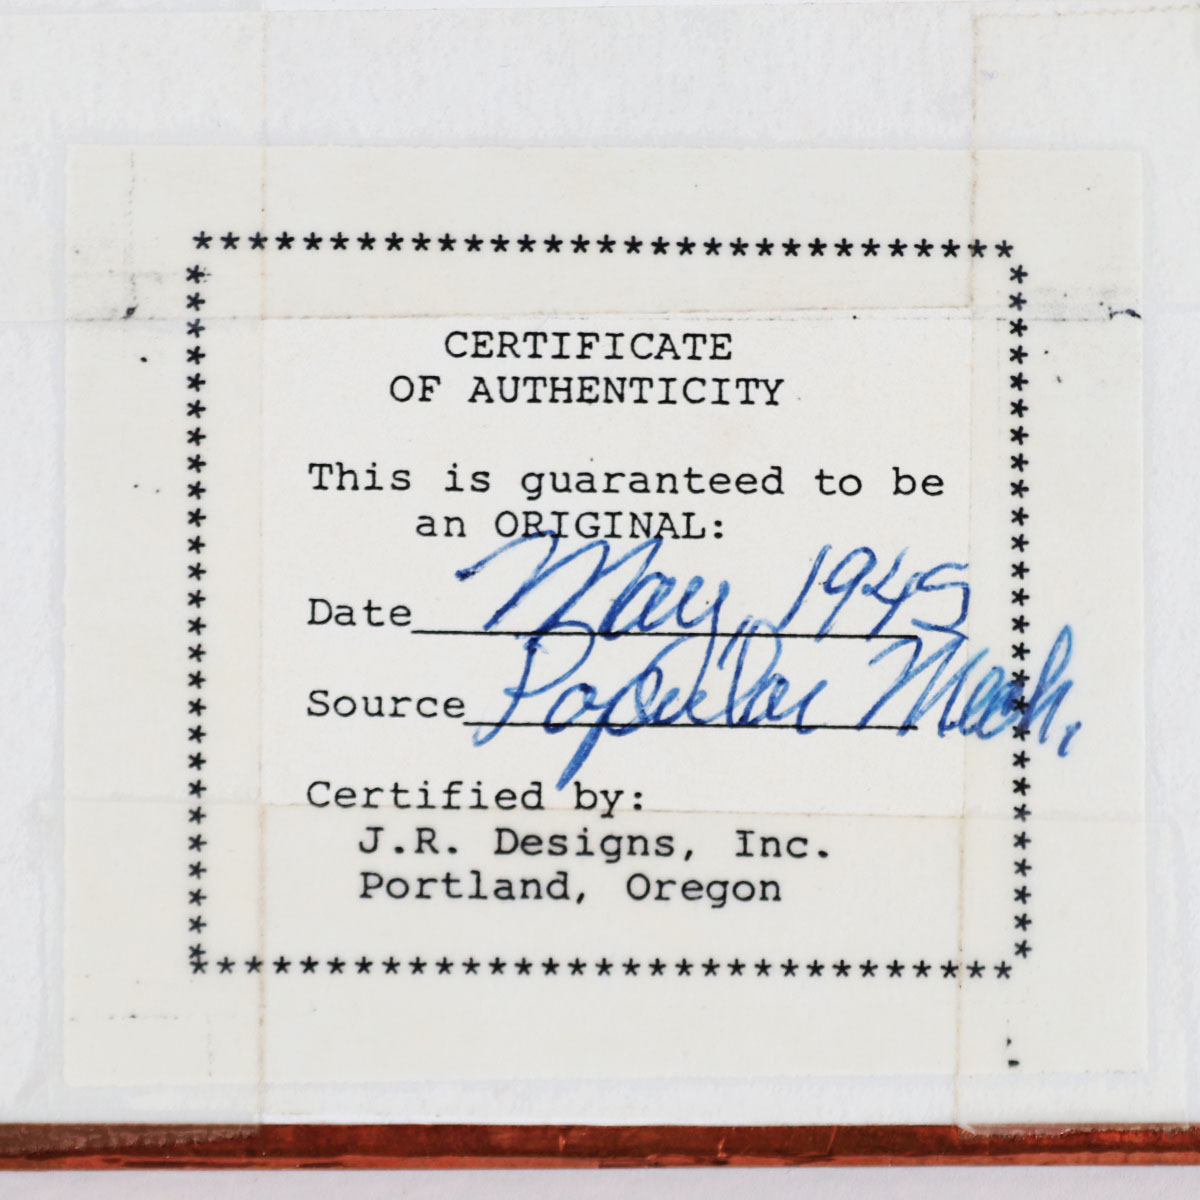 *******************************
CERTIFICATE
OF AUTHENTICITY
This is guaranteed to be
an ORIGINAL:
Date May, 1945
Source Popular Mech.
Certified by:
J.R. Designs, Inc.
Portland, Oregon
*******************************